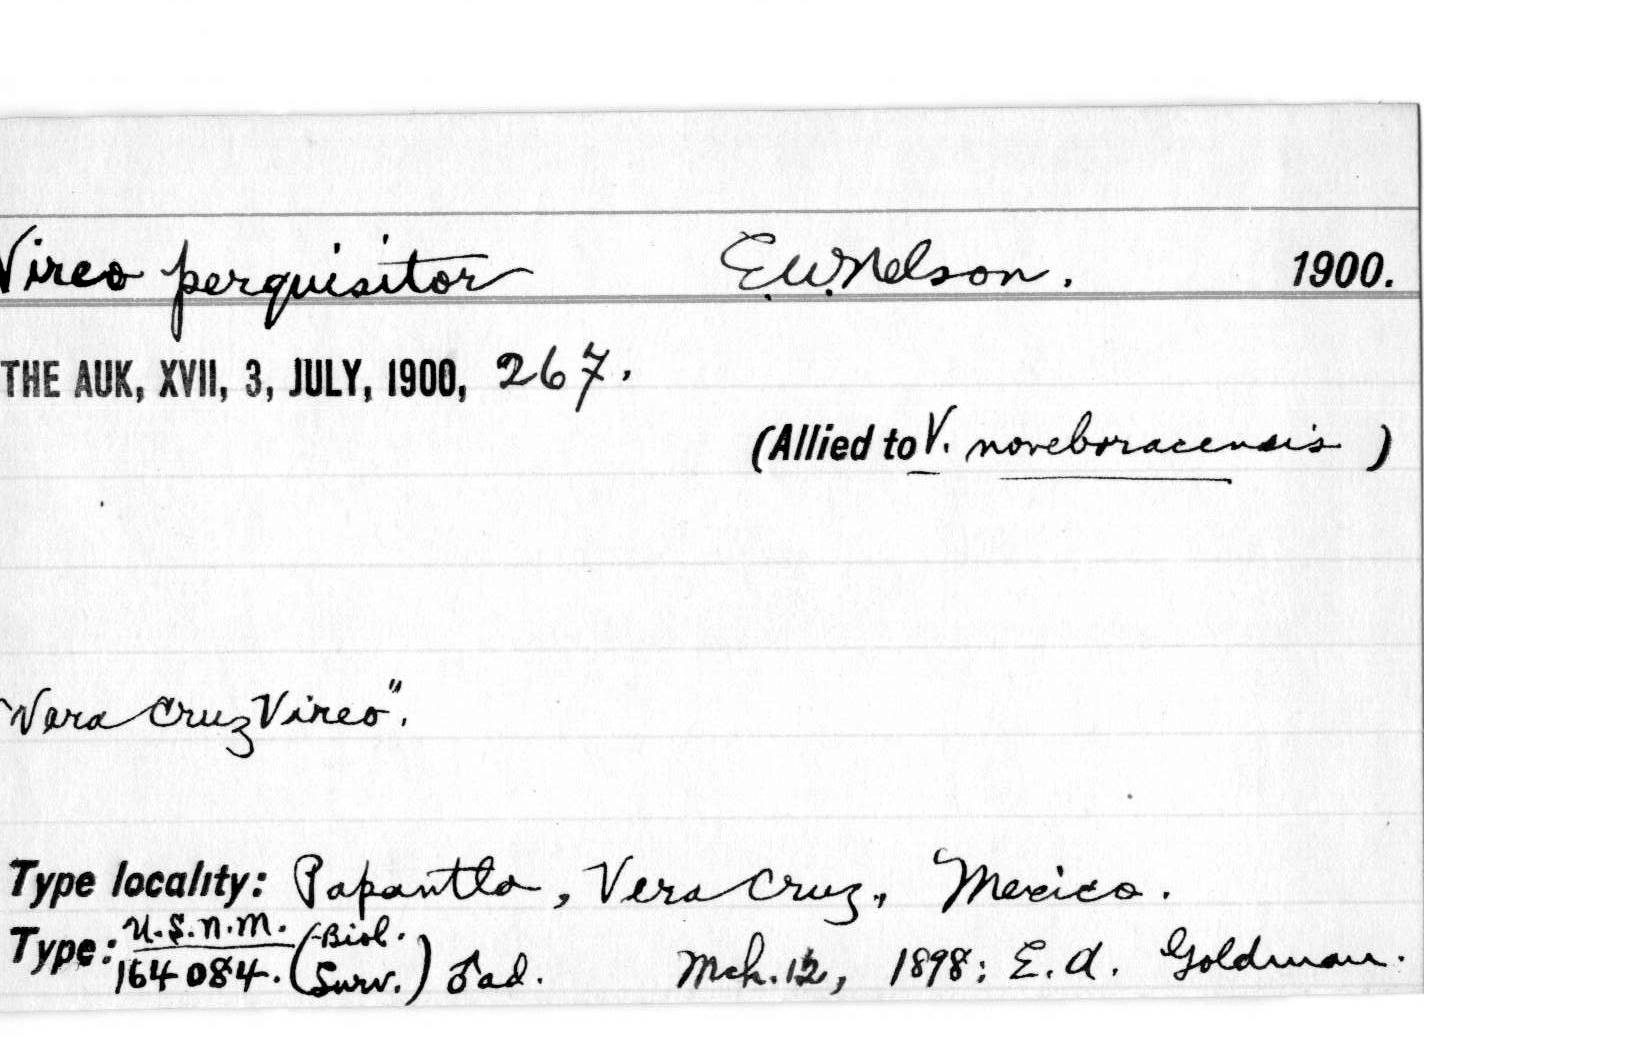 Vireo perquisitor E.W. Nelson. 1900.
THE AUK, XVII, 3, JULY, 1900, 267.
(Allied to V. noveboracensis )
"Vera Cruz Vireo".
Type locality: Papantla, Vera Cruz, Mexico.
Type: U.S.N.M. 164084. (Biol. Surv.) ♂ ad. Mch. 12, 1898: E. A. Goldman.